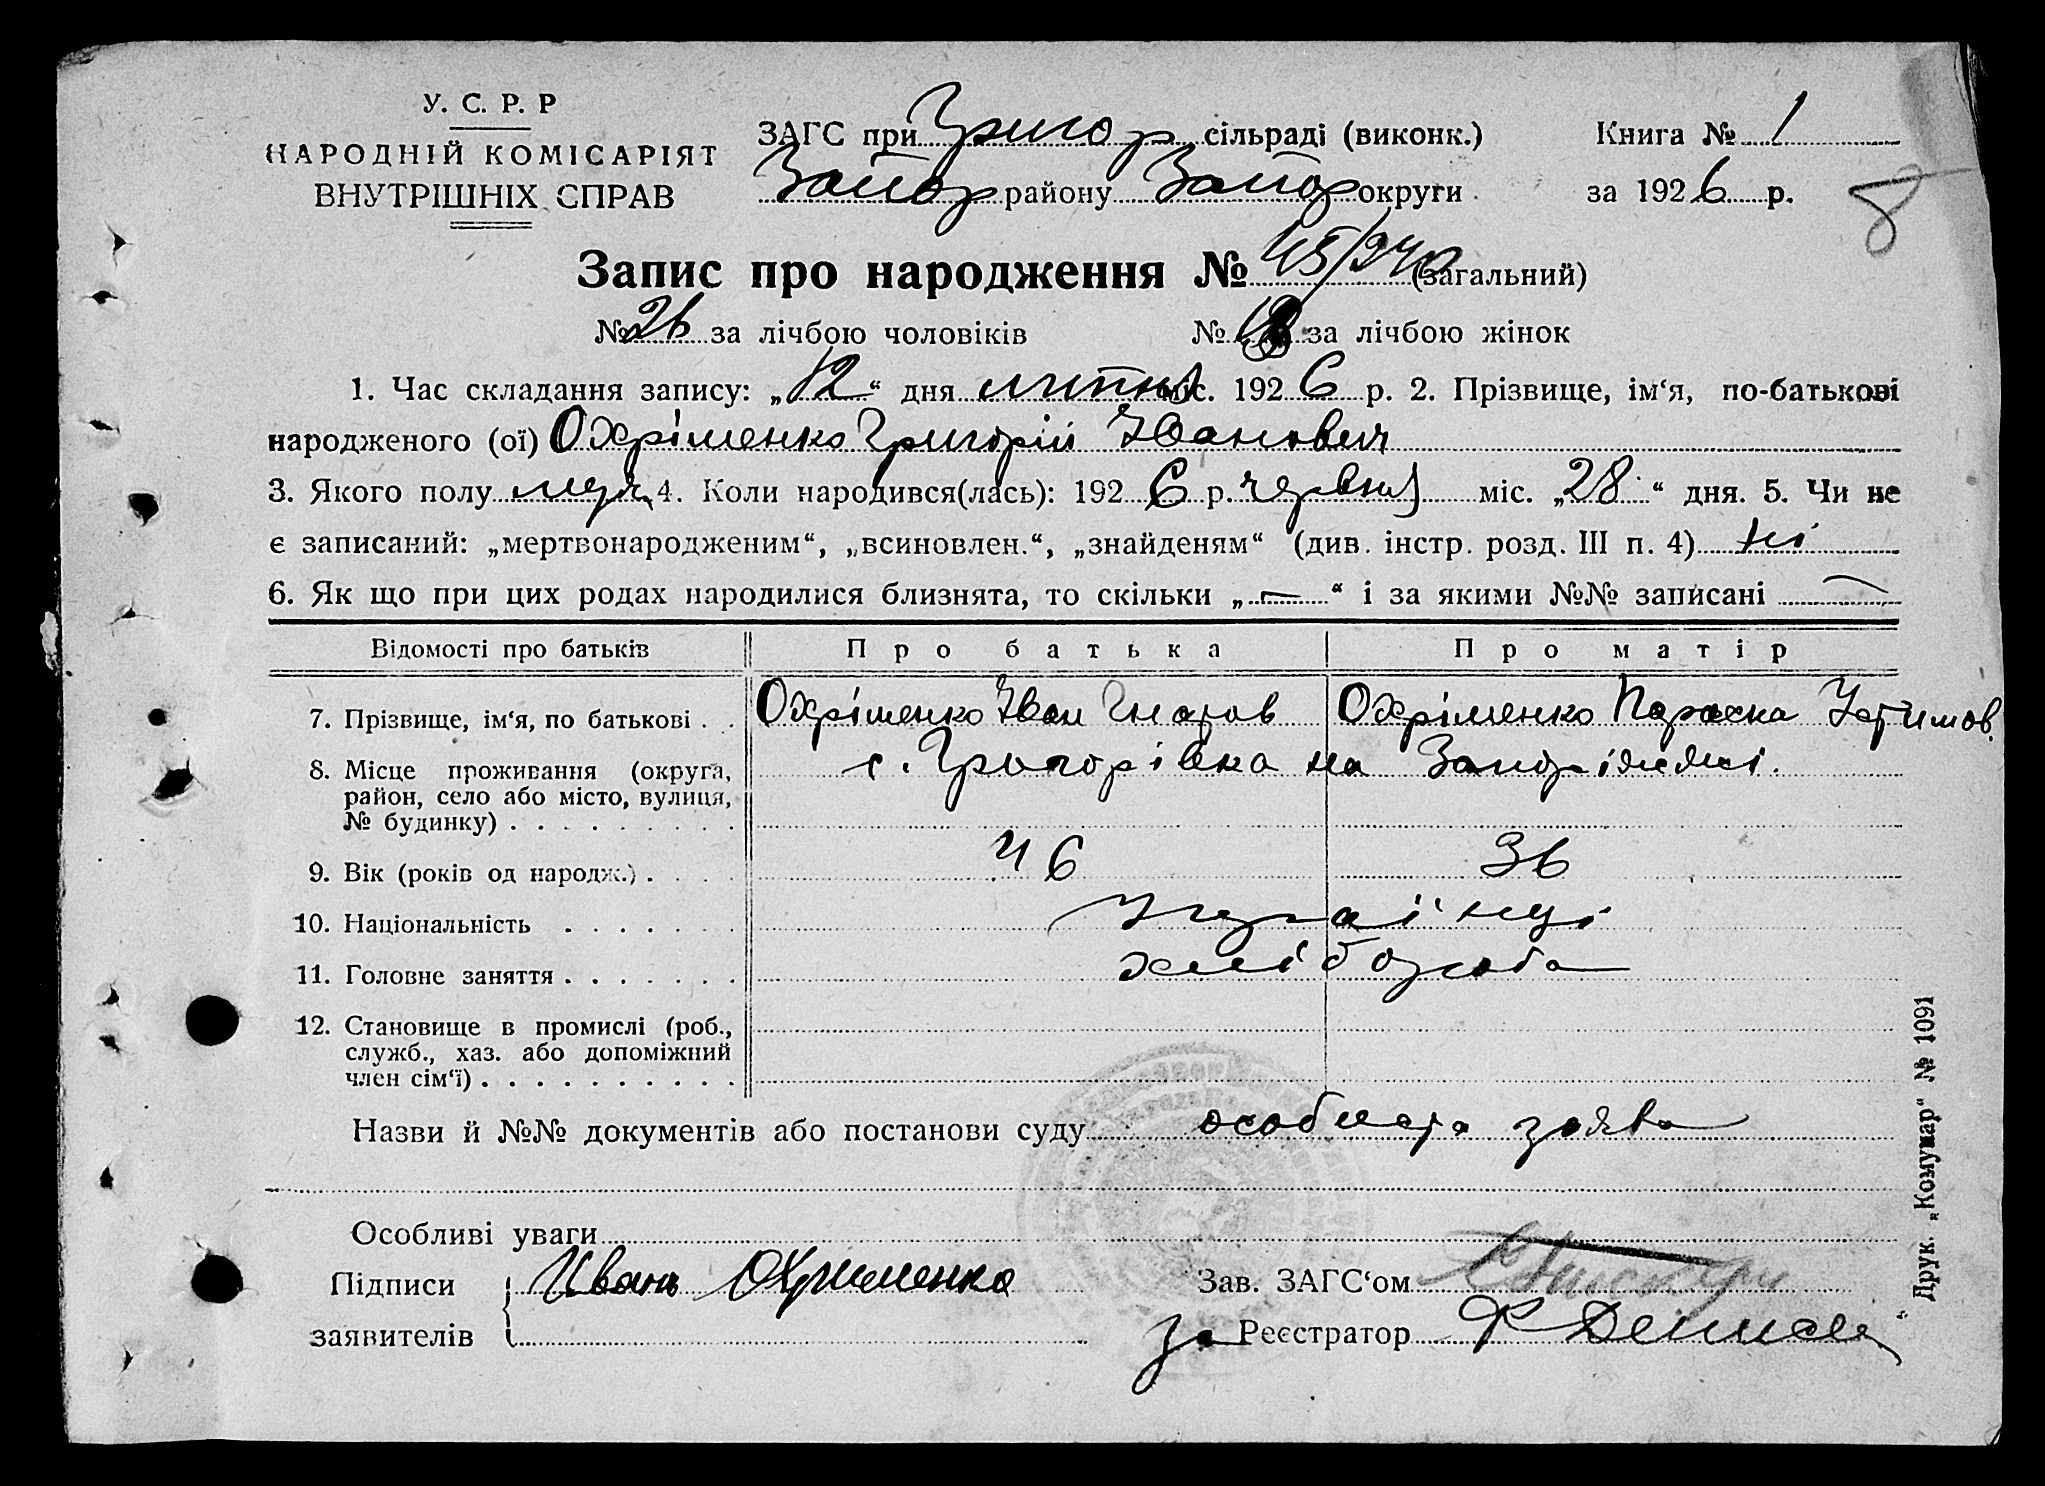 У. С. Р. Р
НАРОДНІЙ КОМІСАРІЯТ
ВНУТРІШНІХ СПРАВ
ЗАГС при Григор сільраді (виконк.)
Запор району Запор округи
Книга № 1
за 1926 р.
8
Запис про народження № 45/240 (загальний)
№ 26 за лічбою чоловіків № за лічбою жінок
1. Час складання запису: „12“ дня липня міс. 1926 р. 2. Прізвище, ім‘я, по-батькові
народженого (ої) Охріменко Григорій Іванович
3. Якого полу муж. 4. Коли народився(лась): 1926 р. червня міс. „28“ дня. 5. Чи не
є записаний: „мертвонародженим“, „всиновлен.“, „знайденям“ (див. інстр. розд. III п. 4) ні
6. Як що при цих родах народилися близнята, то скільки „—“ і за якими №№ записані —
Відомості про батьків Про батька Про матір
7. Прізвище, ім‘я, по батькові . . Охріменко Іван Гнатов Охріменко Параска Устимов.
8. Місце проживання (округа, с. Григорівка на Запоріжжі.
район, село або місто, вулиця,
№ будинку) . . . . . . . . .
9. Вік (років од народж.) . . . . 46 36
10. Національність . . . . . . . українці
11. Головне заняття . . . . . . . хлібороба
12. Становище в промислі (роб.,
служб., хаз. або допоміжний
член сім‘ї) . . . . . . . . . .
Назви й №№ документів або постанови суду особиста заява
Особливі уваги
Підписи Иванъ Охрименко Зав. ЗАГС‘ом
заявителів за Реєстратор
Друк. „Комунар“ № 1091